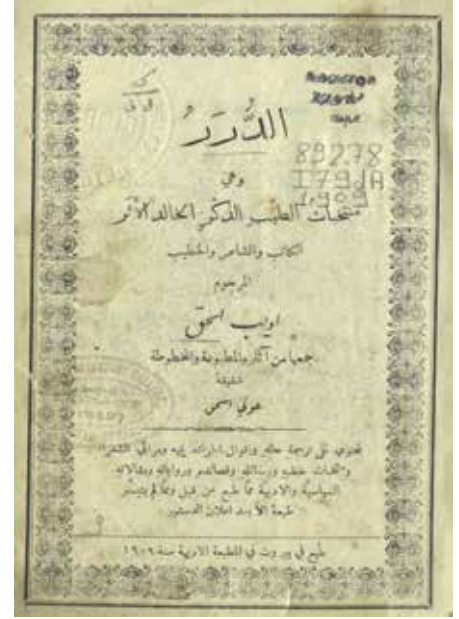 الدُّرَرُ
892.78
I79dA
1909
وهي
منتخبات الطيب الذكر الخالد الأثر
الكاتب والشاعر والخطيب
المرحوم
اديب اسحق
جمعها من آثاره المطبوعة والمخطوطة
شقيقه
عوني اسحق
تحتوي على ترجمة حاله واقوال الجرائد فيه ومراثي الشعراء
وانتخاب خطبه ورسائله وقصائده ورواياته ومقالاته
السياسية والادبية مما طبع من قبل ومما لم يتيسر
طبعه الا بعد اعلان الدستور
طبع في بيروت في المطبعة الادبية سنة ١٩٠٩